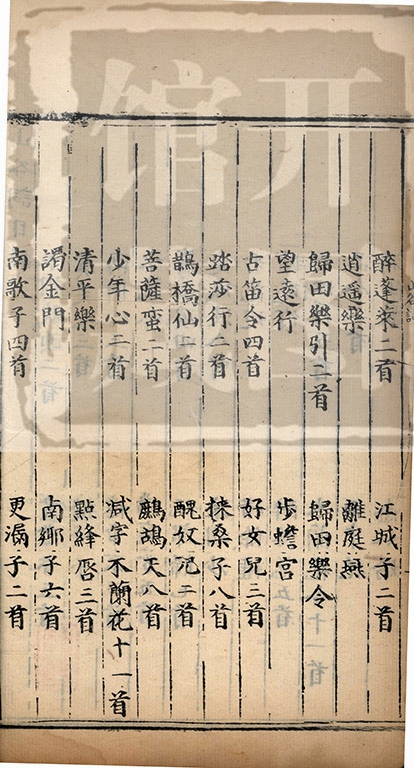 醉蓬萊二首 江城子二首
逍遥樂 離庭燕
歸田樂引二首 歸田樂令
望遠行 步蟾宮
古笛令四首 好女兒三首
踏莎行二首 採桑子八首
鵲橋仙二首 醜奴兒二首
菩薩蛮二首 鷓鴣天八首
少年心二首 减字木蘭花十一首
清平樂三首 點絳唇三首
謁金門 南鄉子六首
南歌子四首 更漏子二首